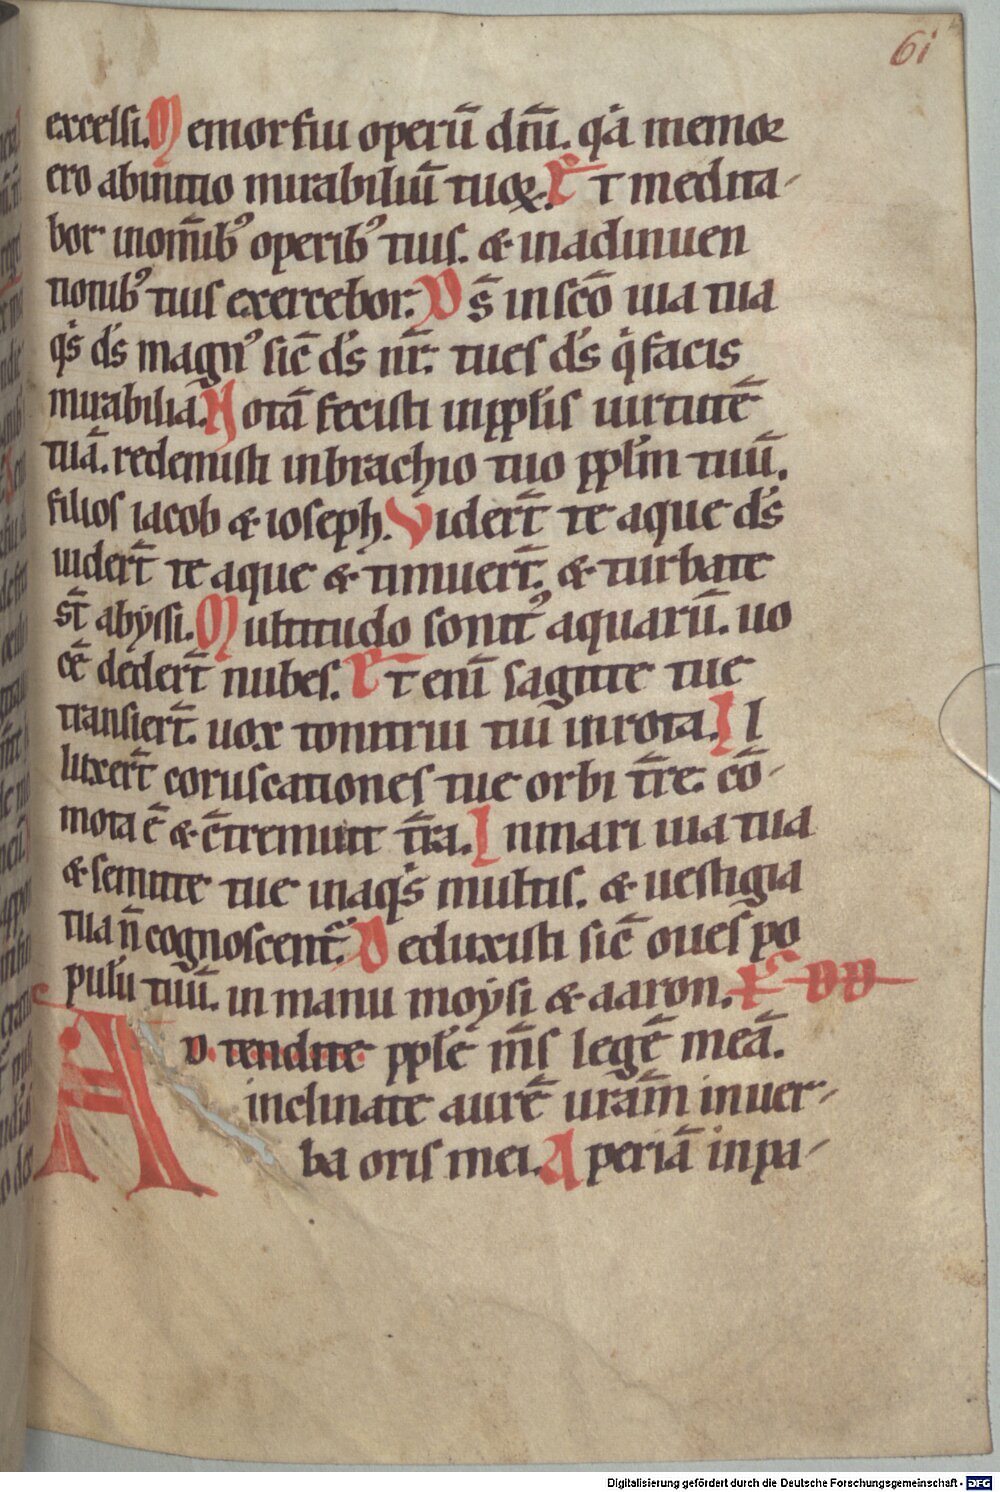 61
excelsi. Memor fui operū dñi. q̇a memor
ero abinitio mirabiliū tuoꝝ. Et medita-
bor inom̄ib᾿ operib᾿ tuis. & inadinuen
tionib᾿ tuis exercebor. Ds̄ insc̄o uia tua
q̇s ds̄ magn᾿ sic̄ ds̄ nr̄. tu es ds̄ q̇ facis
mirabilia. Notā fecisti inpplis uirtutē
tuā. redemisti inbrachio tuo pplm tuū.
filios iacob & ioseph. Vider̄t te aque ds̄
uider̄t te aque & timuer̄t. & turbate
st̄ abyssi. Multitudo sonit᾿ aquarū. uo
cē deder̄t nubes. Et eni̅ sagitte tue
transier̄t. uox tonitrui tui inrota. Il
luxer̄t coruscationes tue orbi tr̄e. cō-
mota ē & c̄tremuit tr̄a. Inmari uia tua
& semite tue inaq̇s multis. & uestigia
tua n̄ cognoscent᷑. Deduxisti sic̄ oues po
pulū tuū. in manu moẏsi & aaron.
Adtendite pplē m̄s legē meā.
inclinate aurē urām in uer-
ba oris mei. Aperiā inpa-
Digitalisierung gefördert durch die Deutsche Forschungsgemeinschaft - DFG